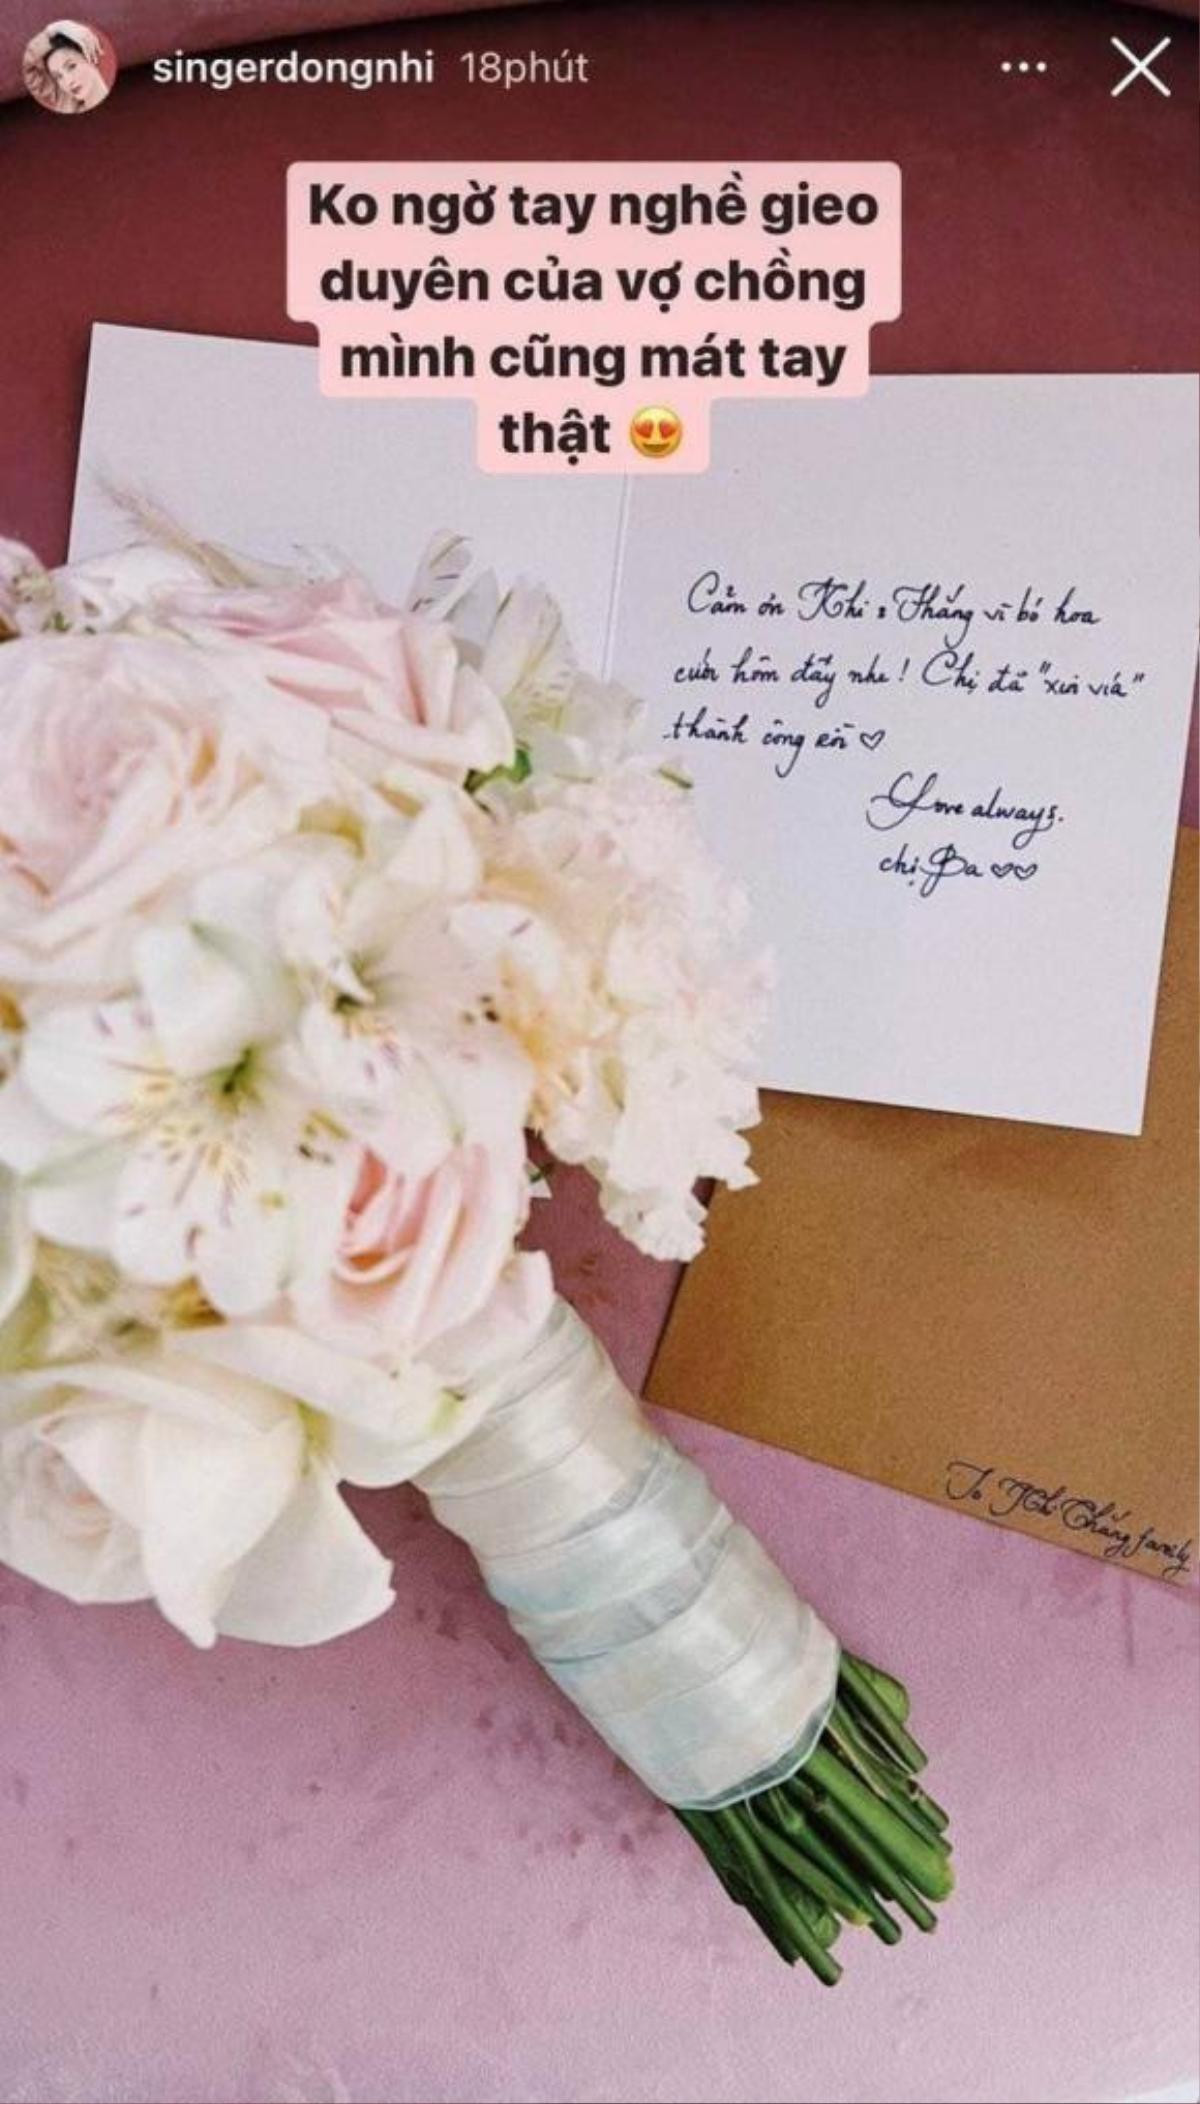 singerdongnhi 18phút
Ko ngờ tay nghề gieo
duyên của vợ chồng
mình cũng mát tay
thật 😍
Cảm ơn Nhi & Thắng vì bó hoa
cưới hôm đấy nhe! Chị đã "xin vía"
thành công rồi ♡
Love always.
chị Ba ♡♡
To Nhi Thắng family